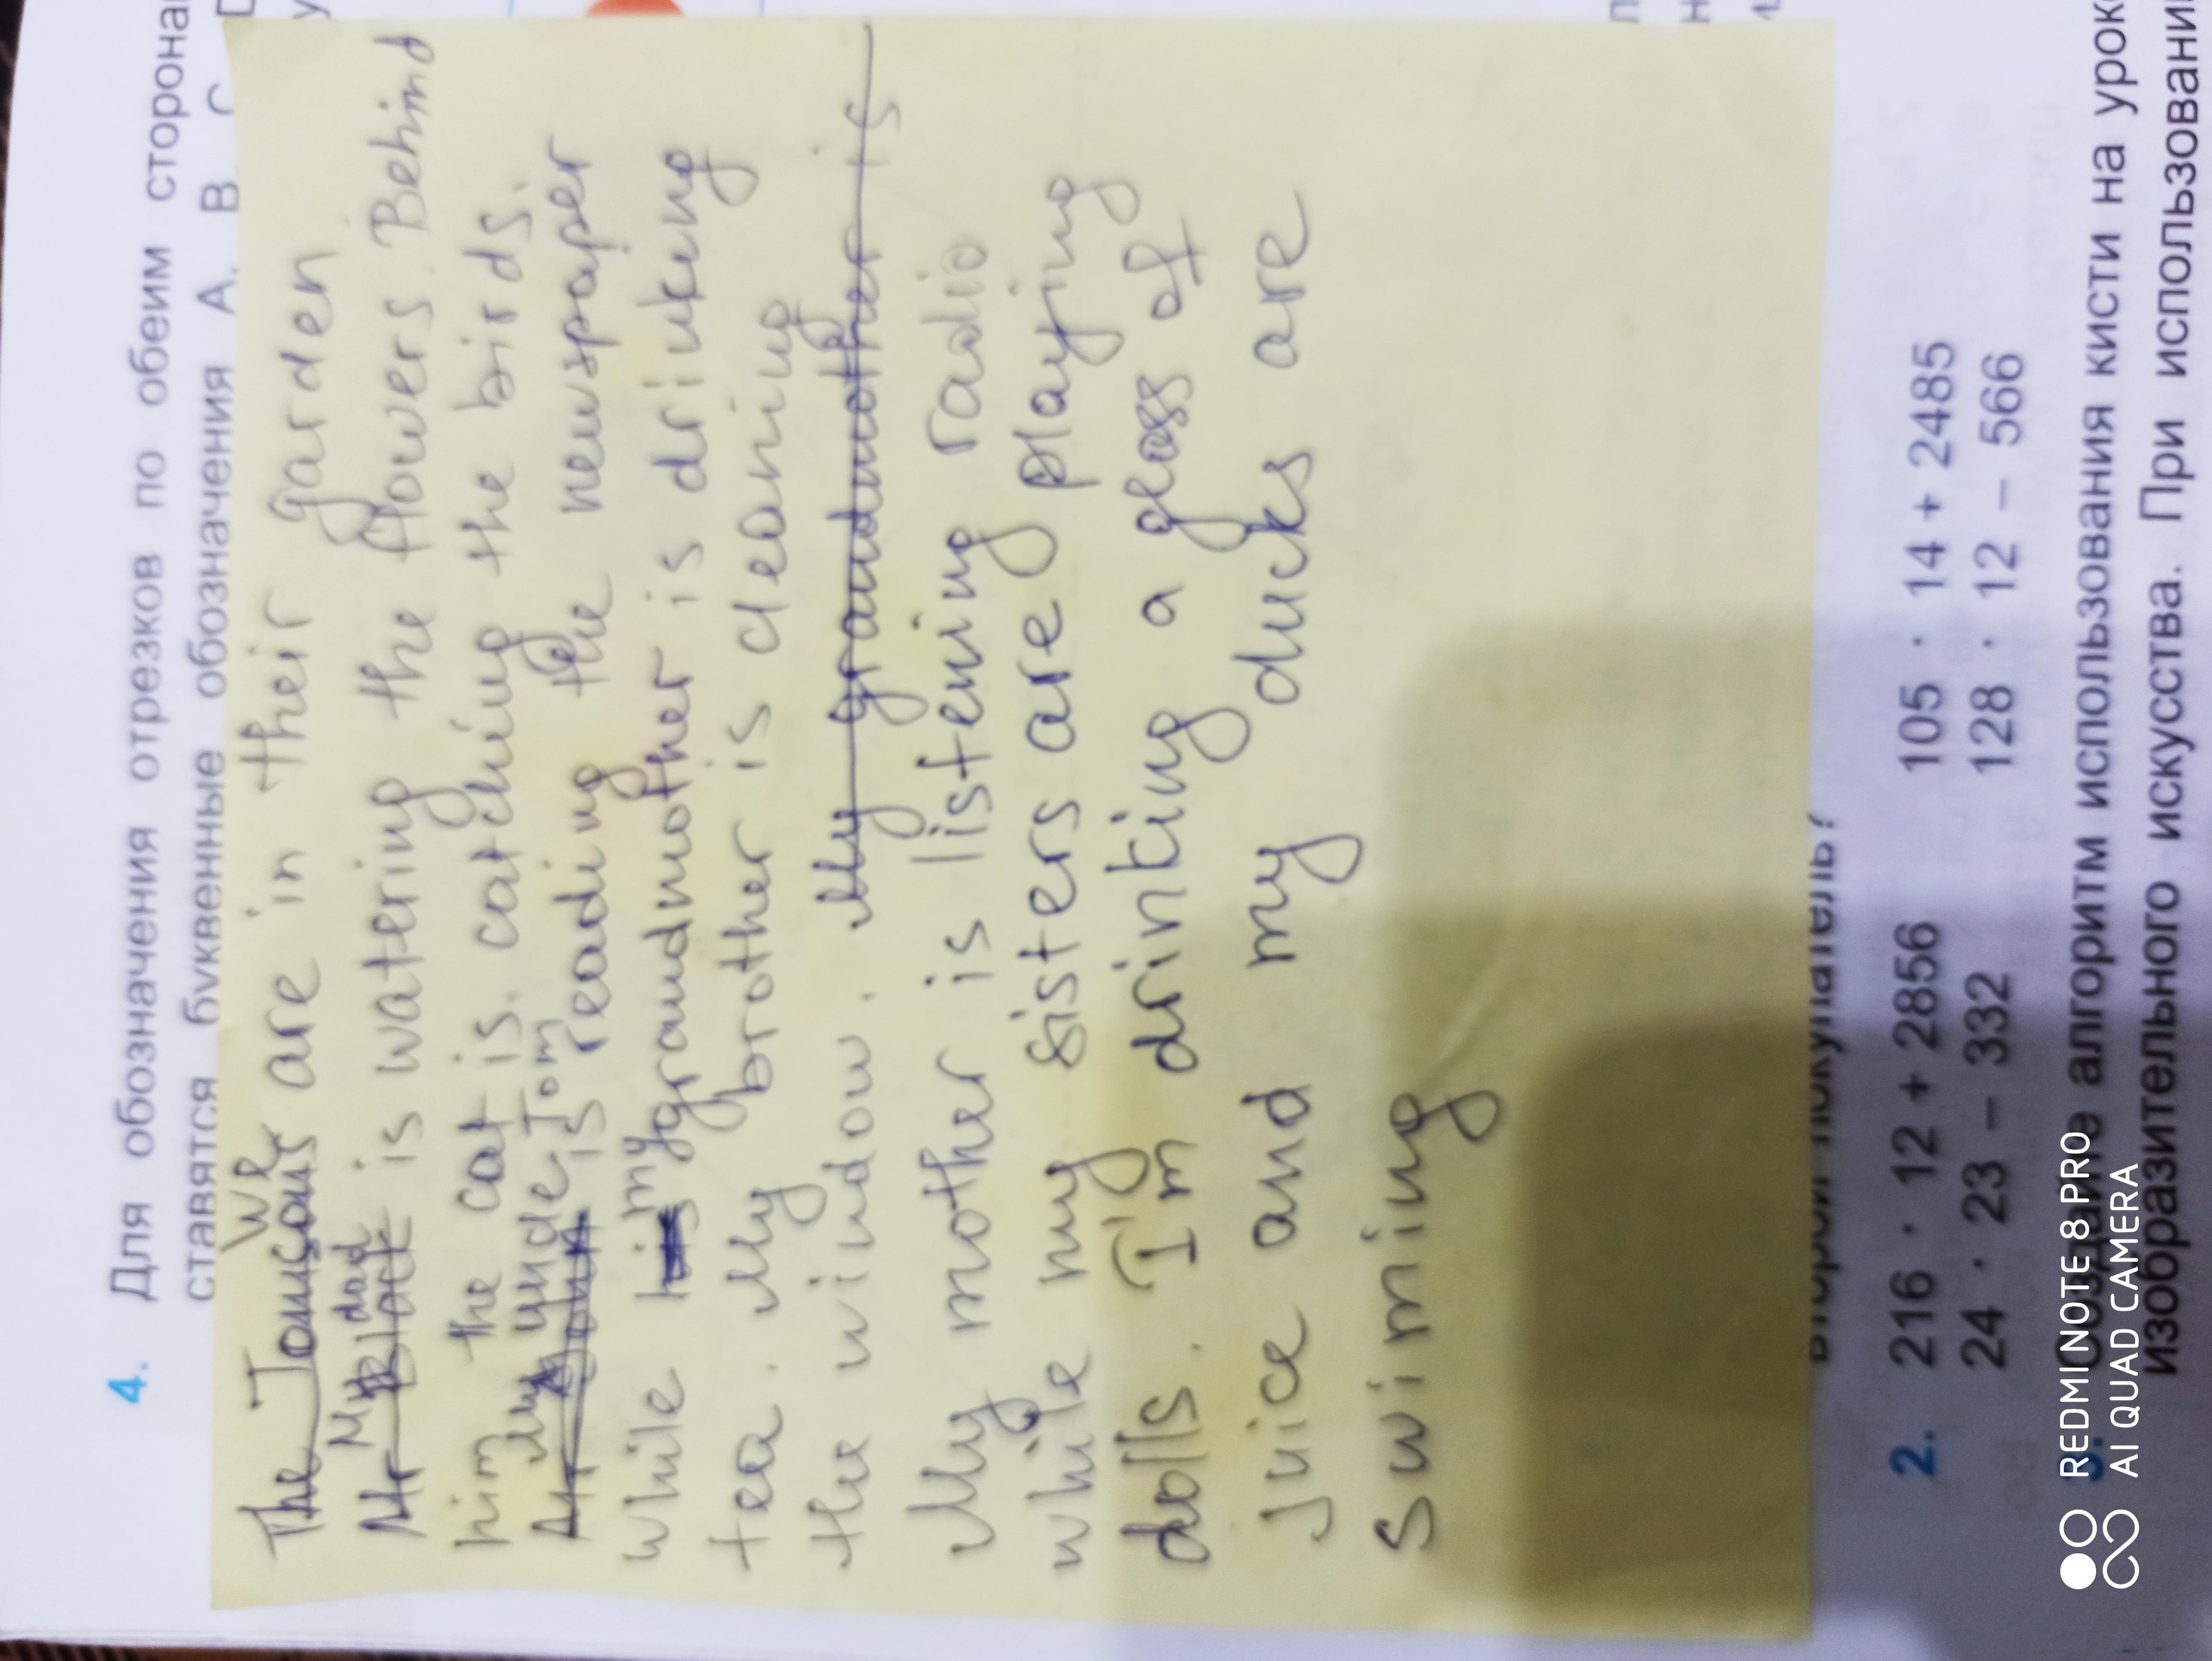 4. Для обозначения отрезков по обеим сторона
ставятся буквенные обозначения А. В С
We
The Tomsons are in their garden
My dad
Mr Black is watering the flowers. Behind
him the cat is catching the birds.
My uncle Tom
Mr John is reading the newspaper
while his my grandmother is drinking
tea. My brother is cleaning
the window. My grandmother is
My mother is listening radio
while my sisters are playing
dolls. I'm drinking a glass of
juice and my ducks are
swiming
покупатель?
2. 216 · 12 + 2856 105 · 14 + 2485
24 · 23 – 332 128 · 12 – 566
алгоритм использования кисти на урок
изобразительного искусства. При использовани
REDMI NOTE 8 PRO
AI QUAD CAMERA